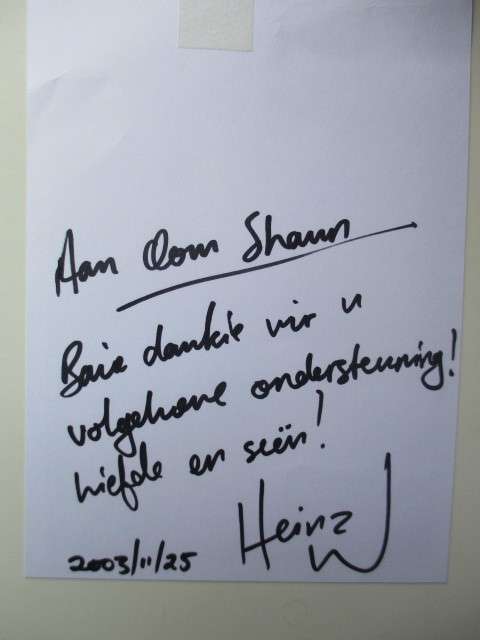 Aan Oom Shaun
Baie dankie vir u
volgehoue ondersteuning!
Liefde en seën!
Heinz W
2003/11/25